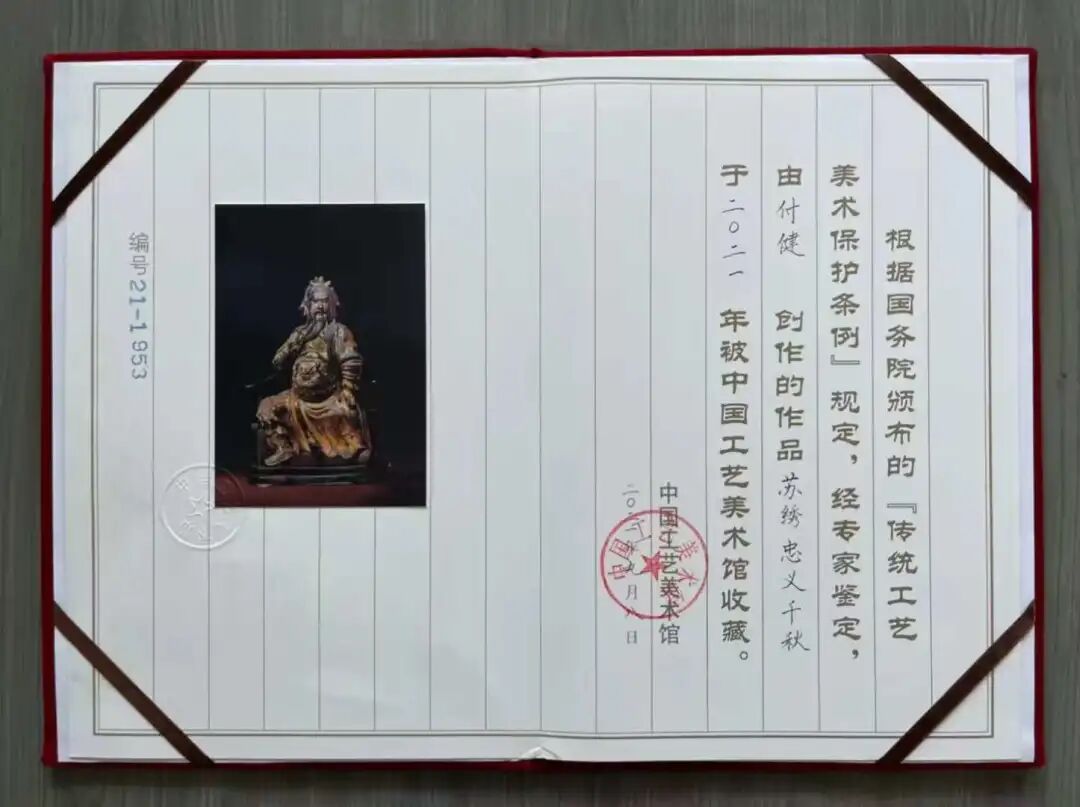 根据国务院颁布的『传统工艺
美术保护条例』规定，经专家鉴定，
由付健 创作的作品苏绣忠义千秋
于二〇二一 年被中国工艺美术馆收藏。
中国工艺美术馆
二〇二一年九月八日
编号21-1953